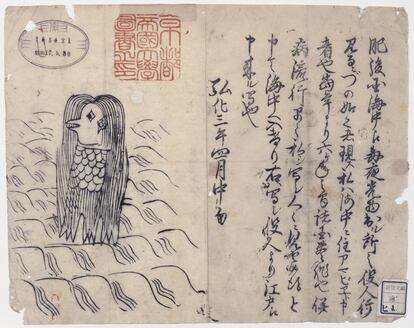 肥後国海中江毎夜光物出ル所之役人行
見るニづの如之者現ス私ハ海中ニ住アマビヱト申
者也当年より六ヶ年之間諸国豊作也併
病流行早々私写シ人々ニ見セ候得と
申て海中へ入けり右写シ役人より江戸江
申来ル写也
弘化三年四月中旬
京都
帝國大學
圖書之印